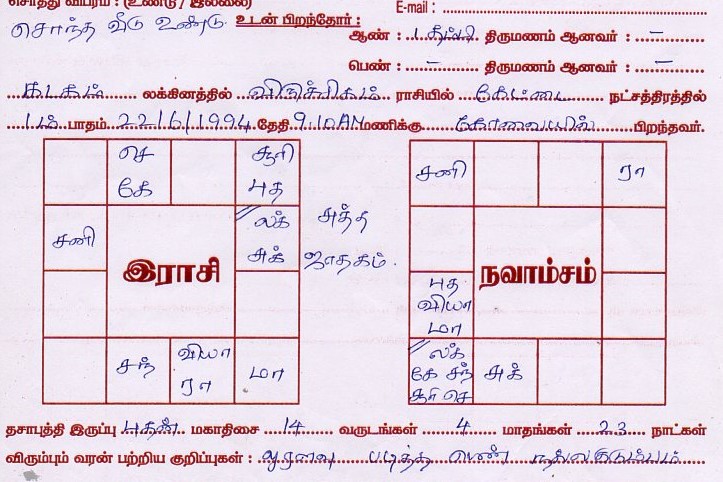 சொத்து விபரம் : (உண்டு / இல்லை)
E-mail :
சொந்த வீடு உண்டு. உடன் பிறந்தோர் :
ஆண் : 1 தம்பி திருமணம் ஆனவர் : –
பெண் : – திருமணம் ஆனவர் : –
கடகம் லக்கினத்தில் விருச்சிகம் ராசியில் கேட்டை நட்சத்திரத்தில்
1ம் பாதம் 22/6/1994 தேதி 9.10AM மணிக்கு கோவையில் பிறந்தவர்.
செ கே
சூரி புத
சனி
லக் சுக்
சுத்த ஜாதகம்.
இராசி
சந்
வியா ரா
மா
சனி
ரா
நவாம்சம்
புத வியா மா
லக் கே சந் சூரி செ
சுக்
தசாபுத்தி இருப்பு புதன் மகாதிசை 14 வருடங்கள் 4 மாதங்கள் 23 நாட்கள்
விரும்பும் வரன் பற்றிய குறிப்புகள் : ஓரளவு படித்த பெண் நல்லகுடும்பம்